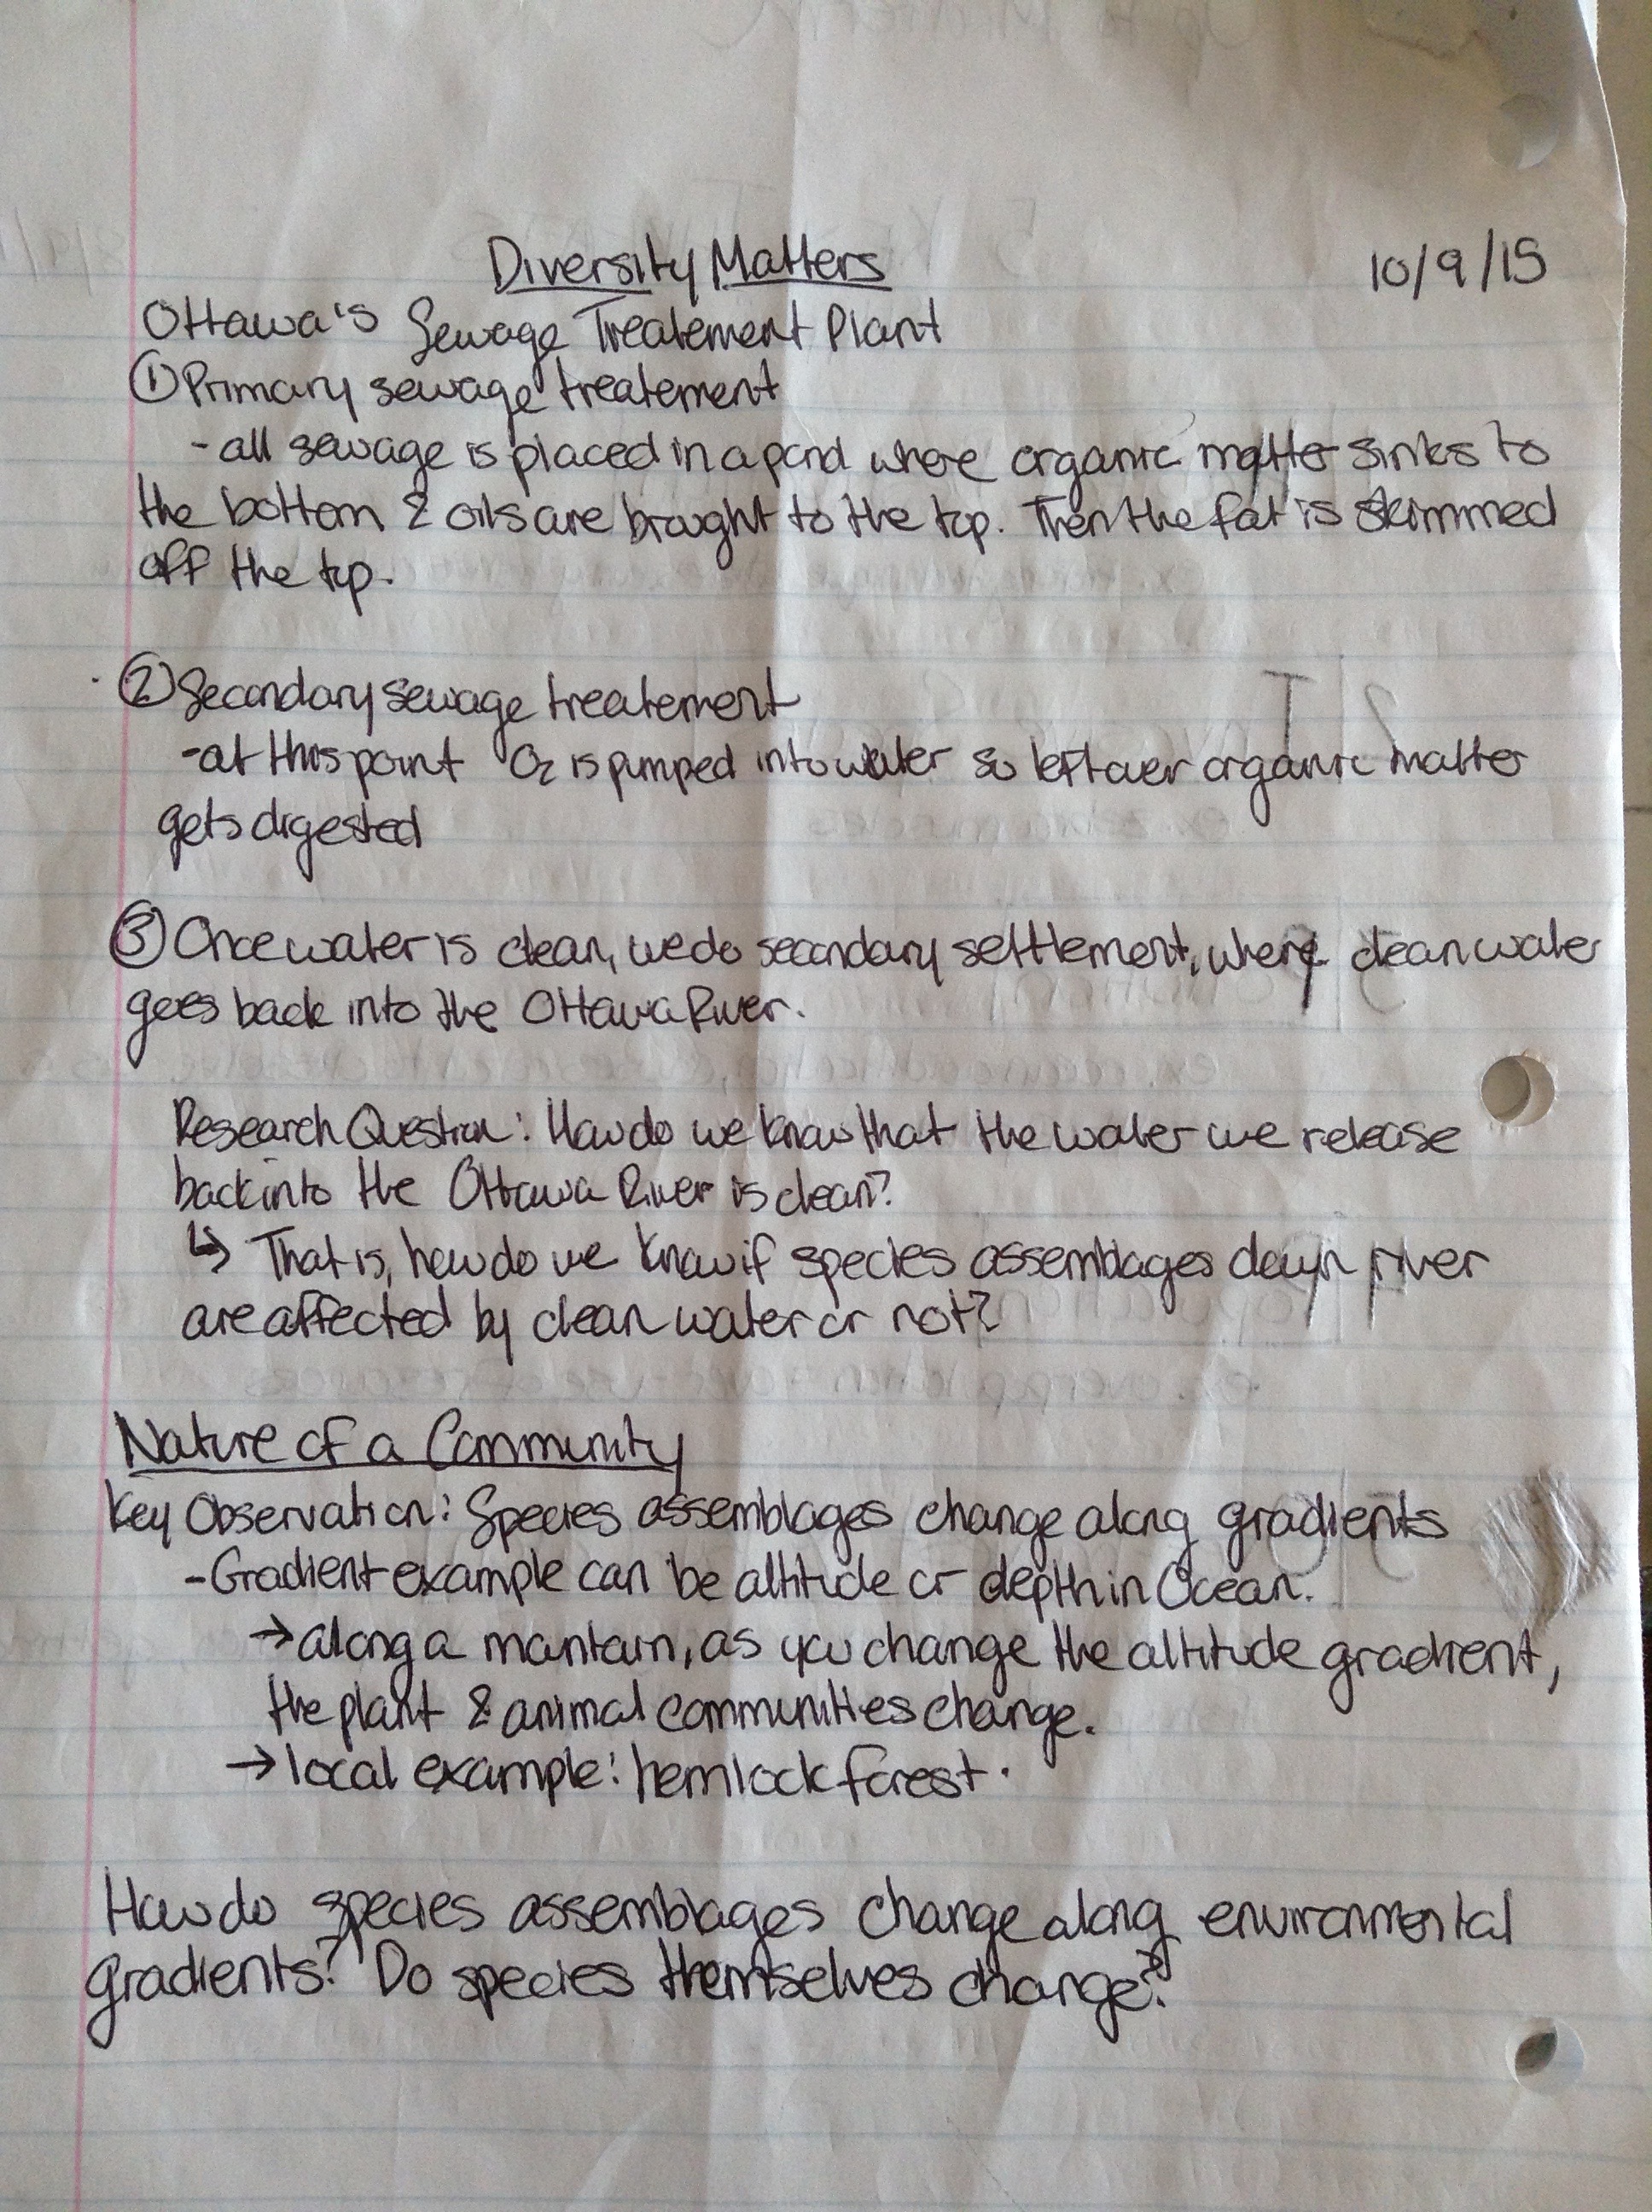 Diversity Matters 10/9/15
Ottawa's Sewage Treatement Plant
① Primary sewage treatement
- all sewage is placed in a pond where organic matter sinks to
the bottom & oils are brought to the top. Then the fat is skimmed
off the top.
② Secondary sewage treatement
- at this point O₂ is pumped into water so leftover organic matter
gets digested
③ Once water is clean, we do secondary settlement, where clean water
goes back into the Ottawa River.
Research Question: How do we know that the water we release
back into the Ottawa River is clean?
↳ That is, how do we know if species assemblages down river
are affected by clean water or not?
Nature of a Community
Key Observation: Species assemblages change along gradients
- Gradient example can be altitude or depth in Ocean.
→ along a mantain, as you change the altitude gradient,
the plant & animal communities change.
→ local example: hemlock forest.
How do species assemblages change along environmental
gradients? Do species themselves change?